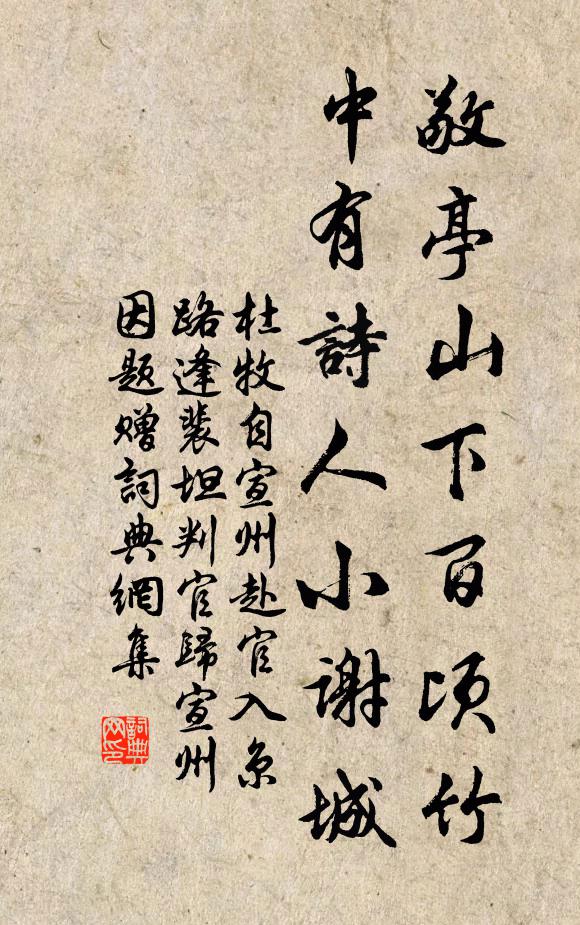 敬亭山下百頃竹
中有詩人小謝城
杜牧自宣州赴官入京
路逢裴坦判官歸宣州
因題贈詞典網集
詞典
网印